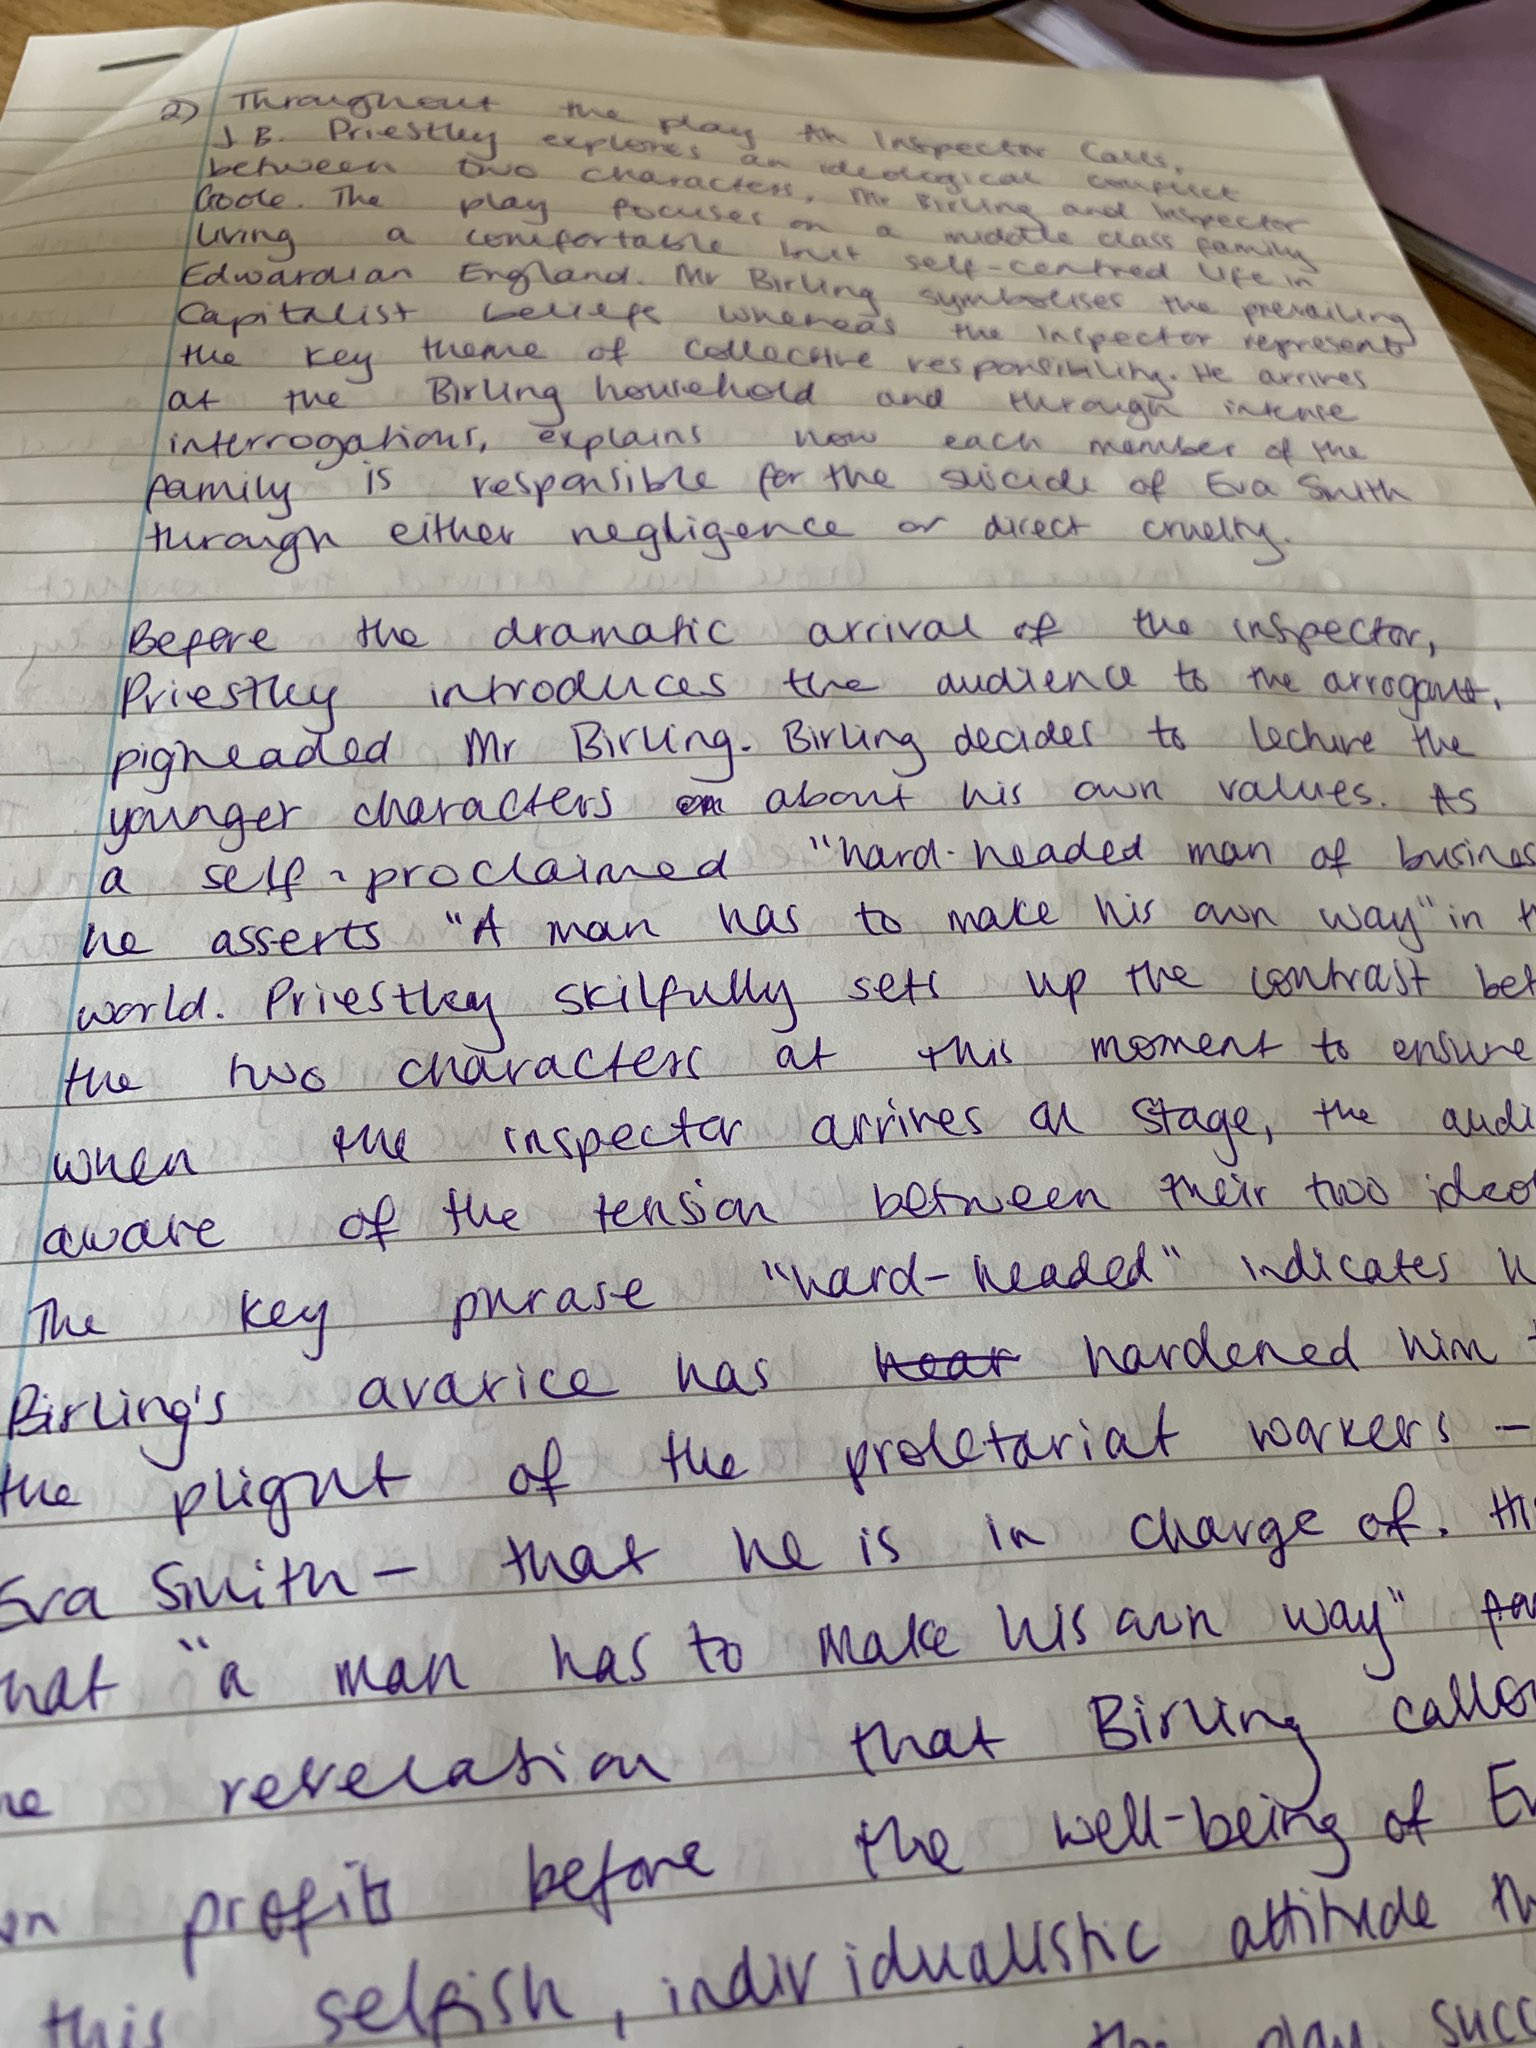 2) Throughout the play An Inspector Calls,
J.B. Priestley explores an ideological conflict
between two characters, Mr Birling and Inspector
Goole. The play focuses on a middle class family
living a comfortable but self-centred life in
Edwardian England. Mr Birling symbolises the prevailing
Capitalist beliefs whereas the inspector represents
the key theme of collective responsibility. He arrives
at the Birling household and through intense
interrogations, explains how each member of the
family is responsible for the suicide of Eva Smith
through either negligence or direct cruelty.
Before the dramatic arrival of the inspector,
Priestley introduces the audience to the arrogant,
pigheaded Mr Birling. Birling decides to lecture the
younger characters about his own values. As
a self-proclaimed "hard-headed man of busines
he asserts "A man has to make his own way" in t
world. Priestley skilfully sets up the contrast bet
the two characters at this moment to ensure
when the inspector arrives on stage, the audi
aware of the tension between their two ideo
The key phrase "hard-headed" indicates h
Birling's avarice has hear hardened him t
the plight of the proletariat workers –
Eva Smith – that he is in charge of. Thi
hat "a man has to make his own way"
he revelation that Birling callo
wn profits before the well-being of Ev
this selfish, individualistic attitude th
the play, succ